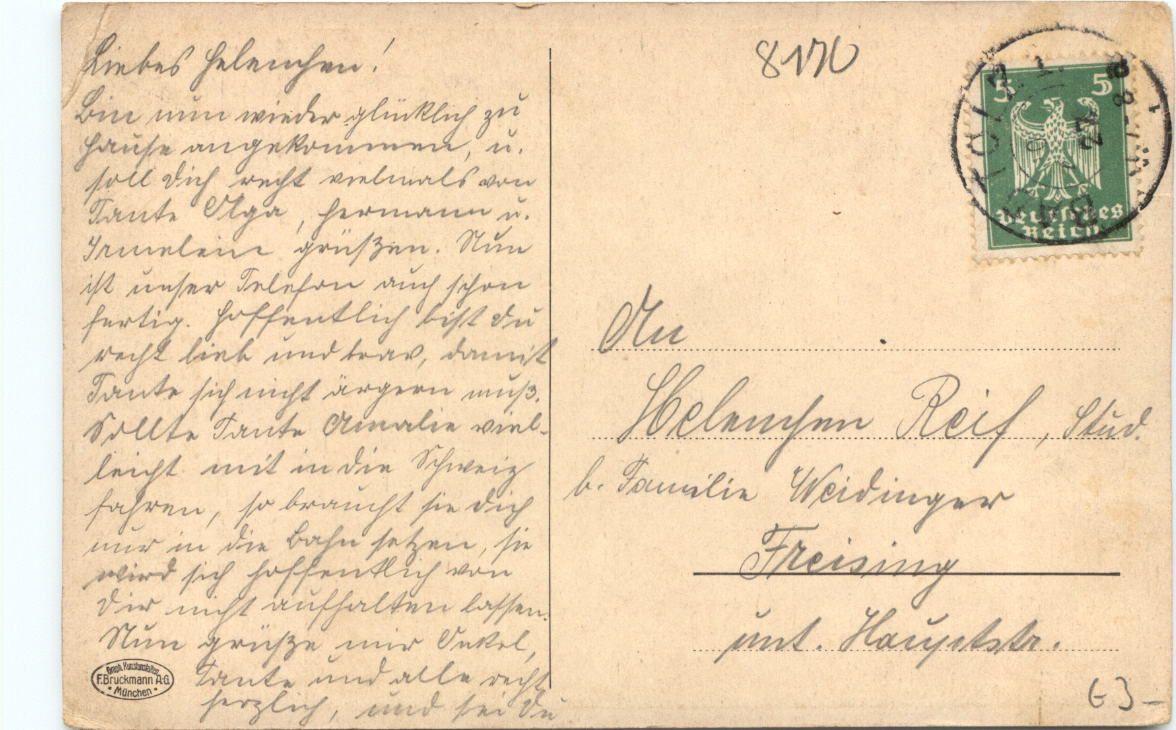 Liebes Helenchen!
Bin nun wieder glücklich zu
Hause angekommen, u.
soll Dich recht vielmals von
Tante Olga, Hermann u.
Irmelein grüßen. Nun
ist unser Telefon auch schon
fertig. Hoffentlich bist Du
recht lieb und brav, damit
Tante sich nicht ärgern muß.
Sollte Tante Amalie viel-
leicht mit in die Schweiz
fahren, so braucht sie Dich
nur in die Bahn setzen, sie
wird sich hoffentlich von
Dir nicht aufhalten lassen.
Nun grüße mir Onkel,
Tante und alle recht
herzlich, und sei Du
Graph. Kunstanstalten
F. Bruckmann A.G.
München
8170
5 5
Deutsches
Reich
TÖLZ
An
Helenchen Reif, Stud.
b. Familie Weidinger
Freising
unt. Hauptstr.
G3-